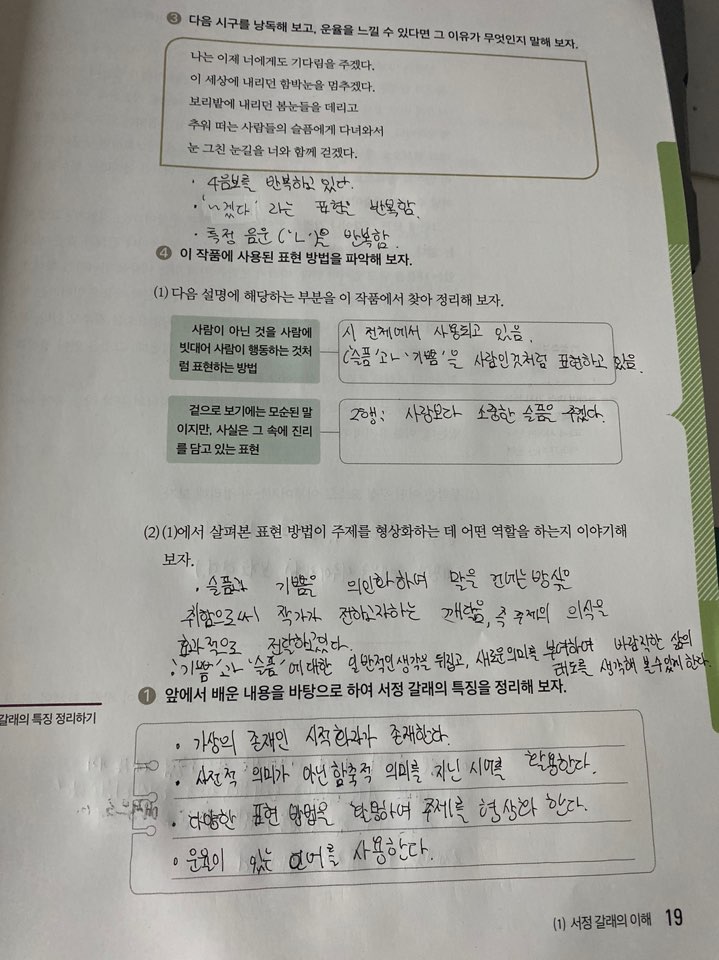 ❸ 다음 시구를 낭독해 보고, 운율을 느낄 수 있다면 그 이유가 무엇인지 말해 보자.
나는 이제 너에게도 기다림을 주겠다.
이 세상에 내리던 함박눈을 멈추겠다.
보리밭에 내리던 봄눈들을 데리고
추워 떠는 사람들의 슬픔에게 다녀와서
눈 그친 눈길을 너와 함께 걷겠다.
· 4음보를 반복하고 있다.
· '~겠다' 라는 표현을 반복함.
· 특정 음운('ㄴ')을 반복함.
❹ 이 작품에 사용된 표현 방법을 파악해 보자.
(1) 다음 설명에 해당하는 부분을 이 작품에서 찾아 정리해 보자.
사람이 아닌 것을 사람에
빗대어 사람이 행동하는 것처
럼 표현하는 방법
시 전체에서 사용되고 있음.
('슬픔'과 '기쁨'을 사람인것처럼 표현하고 있음.
겉으로 보기에는 모순된 말
이지만, 사실은 그 속에 진리
를 담고 있는 표현
2행: 사랑보다 소중한 슬픔을 주겠다.
(2) (1)에서 살펴본 표현 방법이 주제를 형상화하는 데 어떤 역할을 하는지 이야기해
보자.
· 슬픔과 기쁨을 의인화하여 말을 건네는 방식을
취함으로써 작가가 전하고자하는 깨달음, 즉 주제의 의식을
효과적으로 전달하고있다.
'기쁨'과 '슬픔'에 대한 일반적인 생각을 뒤집고, 새로운 의미를 부여하여 바람직한 삶의
태도를 생각해 볼수있게 한다.
갈래의 특징 정리하기
❶ 앞에서 배운 내용을 바탕으로 하여 서정 갈래의 특징을 정리해 보자.
· 가상의 존재인 시적화자가 존재한다.
· 사전적 의미가 아닌 함축적 의미를 지닌 시어를 활용한다.
· 다양한 표현 방법을 활용하여 주제를 형상화 한다.
· 운율이 있는 언어를 사용한다.
(1) 서정 갈래의 이해 19